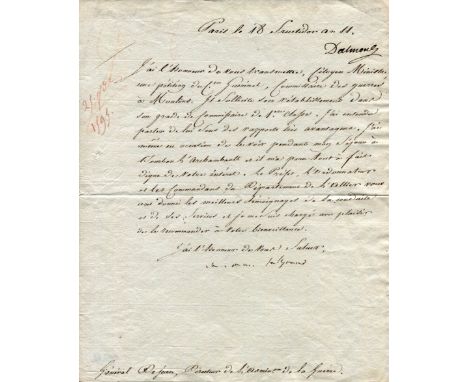 Paris le 18 fructidor an 11.
J'ai l'honneur de vous transmettre, Citoyen Ministre
une pétition du Cen Commissaire des guerres
à Moulins. Il sollicite son rétablissement dans
son grade de Commissaire de 1ere Classe. J'ai entendu
parler de lui sous des rapports très avantageux. J'ai
même eu occasion de le voir pendant mon séjour à
Bourbon l'Archambault et il m'a paru tout à fait
digne de votre intérêt. Le Préfet, l'ordonnateur
et les Commandans du Département de l'Allier vous
ont donné les meilleurs témoignages de sa conduite
et de ses services et je me suis chargé avec plaisir
de le recommander à votre bienveillance.
J'ai l'honneur de vous saluer,
Général Dejean, Directeur de l'administ de la Guerre.